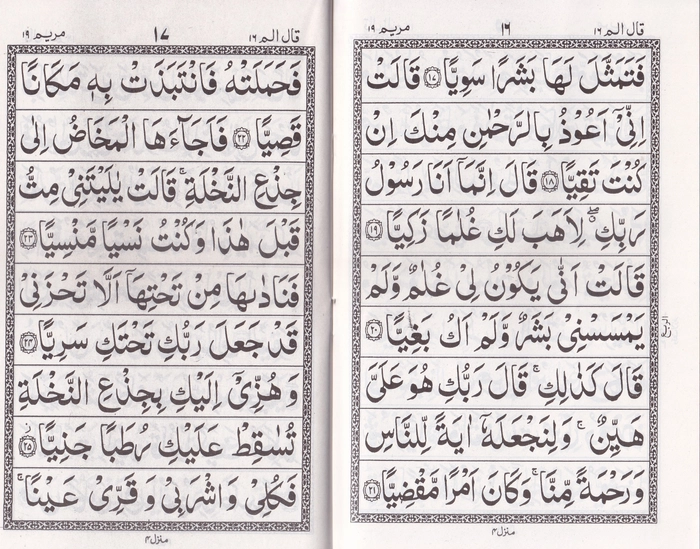 قال الم ١٦
١٦
مريم ١٩
فَتَمَثَّلَ لَهَا بَشَرًا سَوِيًّا ١٧ قَالَتْ
اِنِّيْٓ اَعُوْذُ بِالرَّحْمٰنِ مِنْكَ اِنْ
كُنْتَ تَقِيًّا ١٨ قَالَ اِنَّمَآ اَنَا رَسُوْلُ
رَبِّكِ ۖ لِاَهَبَ لَكِ غُلٰمًا زَكِيًّا ١٩
قَالَتْ اَنّٰى يَكُوْنُ لِيْ غُلٰمٌ وَّلَمْ
يَمْسَسْنِيْ بَشَرٌ وَّلَمْ اَكُ بَغِيًّا ٢٠
قَالَ كَذٰلِكِ ۚ قَالَ رَبُّكِ هُوَ عَلَيَّ
هَيِّنٌ ۚ وَلِنَجْعَلَهٗٓ اٰيَةً لِّلنَّاسِ
وَرَحْمَةً مِّنَّا ۚ وَكَانَ اَمْرًا مَّقْضِيًّا ٢١
منزل ٤
قال الم ١٦
١٧
مريم ١٩
فَحَمَلَتْهُ فَانْتَبَذَتْ بِهٖ مَكَانًا
قَصِيًّا ٢٢ فَاَجَآءَهَا الْمَخَاضُ اِلٰى
جِذْعِ النَّخْلَةِ ۚ قَالَتْ يٰلَيْتَنِيْ مِتُّ
قَبْلَ هٰذَا وَكُنْتُ نَسْيًا مَّنْسِيًّا ٢٣
فَنَادٰىهَا مِنْ تَحْتِهَآ اَلَّا تَحْزَنِيْ
قَدْ جَعَلَ رَبُّكِ تَحْتَكِ سَرِيًّا ٢٤
وَهُزِّيْٓ اِلَيْكِ بِجِذْعِ النَّخْلَةِ
تُسٰقِطْ عَلَيْكِ رُطَبًا جَنِيًّا ٢٥
فَكُلِيْ وَاشْرَبِيْ وَقَرِّيْ عَيْنًا ۚ
منزل ٤